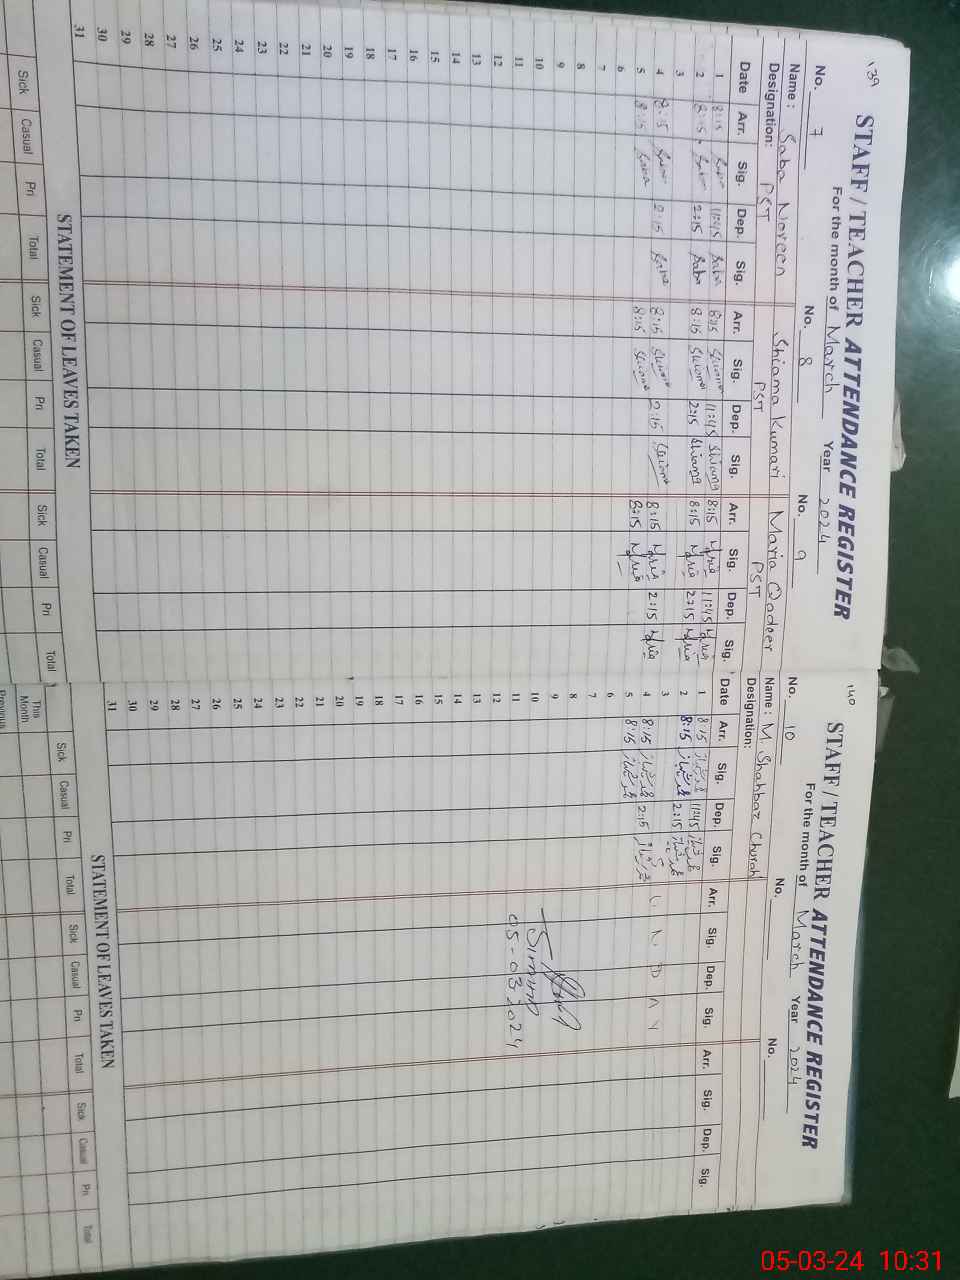 139
STAFF / TEACHER ATTENDANCE REGISTER
For the month of March Year 2024
No. 7 No. 8 No. 9
Name : Saba Noreen Shiama Kumari Maria Qadeer
Designation: PST PST PST
Date Arr. Sig. Dep. Sig. Arr. Sig. Dep. Sig. Arr. Sig. Dep. Sig.
1 8:15 Saba 11:45 Saba 8:15 Shiama 11:45 Shiama 8:15 Maria 11:45 Maria
2 8:15 Saba 2:15 Saba 8:15 Shiama 2:15 Shiama 8:15 Maria 2:15 Maria
3
4 8:15 Saba 2:15 Saba 8:15 Shiama 2:15 Shiama 8:15 Maria 2:15 Maria
5 8:15 Saba 8:15 Shiama 8:15 Maria
6
7
8
9
10
11
12
13
14
15
16
17
18
19
20
21
22
23
24
25
26
27
28
29
30
31
STATEMENT OF LEAVES TAKEN
Sick Casual Pri Total Sick Casual Pri Total Sick Casual Pri Total
140
STAFF / TEACHER ATTENDANCE REGISTER
For the month of March Year 2024
No. 10 No. No.
Name : M. Shahbaz Churahi
Designation:
Date Arr. Sig. Dep. Sig. Arr. Sig. Dep. Sig. Arr. Sig. Dep. Sig.
1 8:15 محمد شہباز 11:45 محمد شہباز
2 8:15 محمد شہباز 2:15 محمد شہباز
3
4 8:15 محمد شہباز 2:15 محمد شہباز
5 8:15 محمد شہباز
6
7
8
9
10
11
12
13
14
15
16
17
18
19
20
21
22
23
24
25
26
27
28
29
30
31
05-03-2024
STATEMENT OF LEAVES TAKEN
Sick Casual Pri Total Sick Casual Pri Total Sick Casual Pri Total
This Month
Previous
05-03-24 10:31